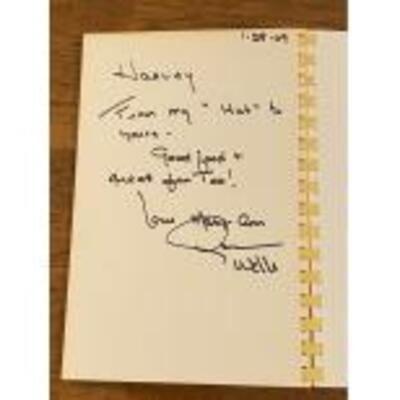 1-28-09
Harvey
From my "Hut" to
yours -
Good food &
great fun Too!
Love Mary Ann
Wells